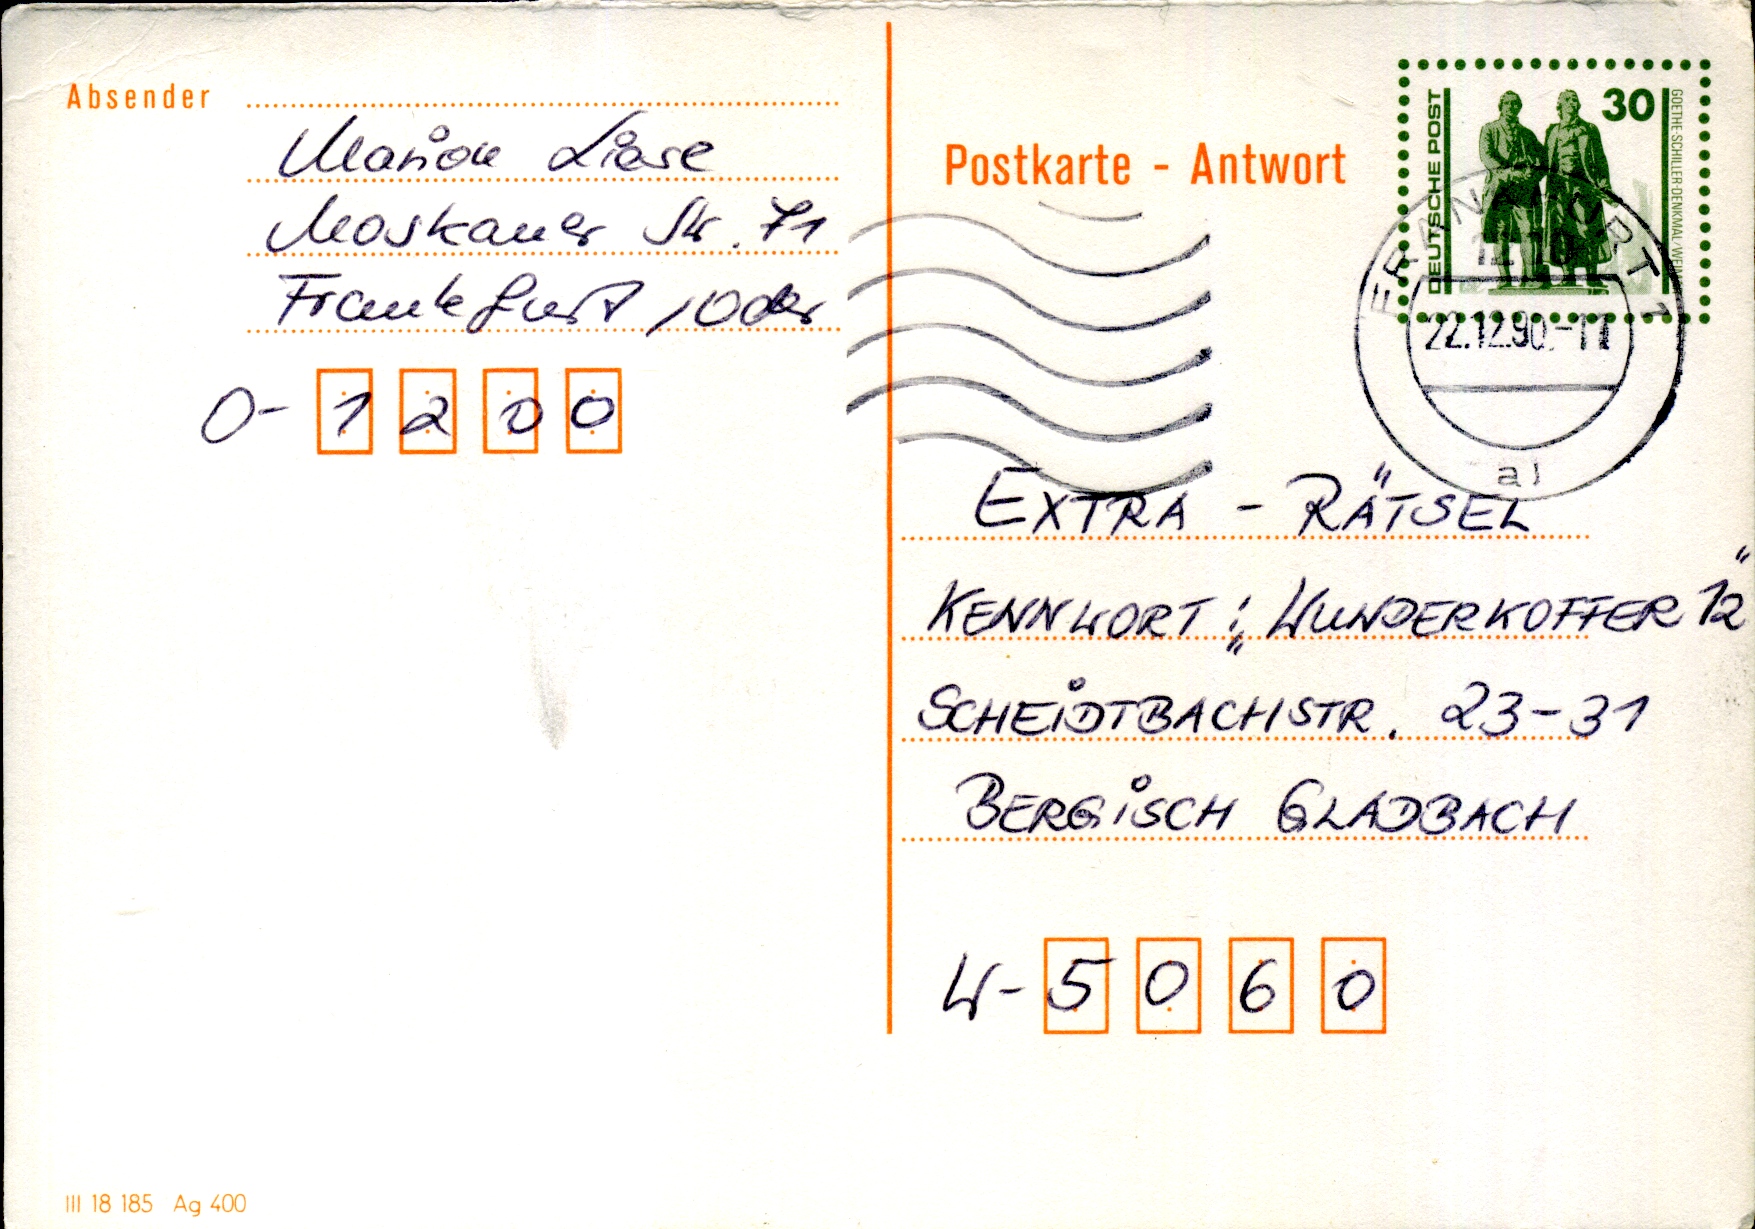 Absender
Marion Liese
Moskauer Str. 71
Frankfurt /Oder
O- 1200
Postkarte - Antwort
DEUTSCHE POST
30
GOETHE-SCHILLER-DENKMAL/WEIMAR
FRANKFURT 1
1210
22.12.90.-11
a
EXTRA - RÄTSEL
KENNWORT: „WUNDERKOFFER 12"
SCHEIDTBACHSTR. 23-31
BERGISCH GLADBACH
W- 5060
III 18 185 Ag 400